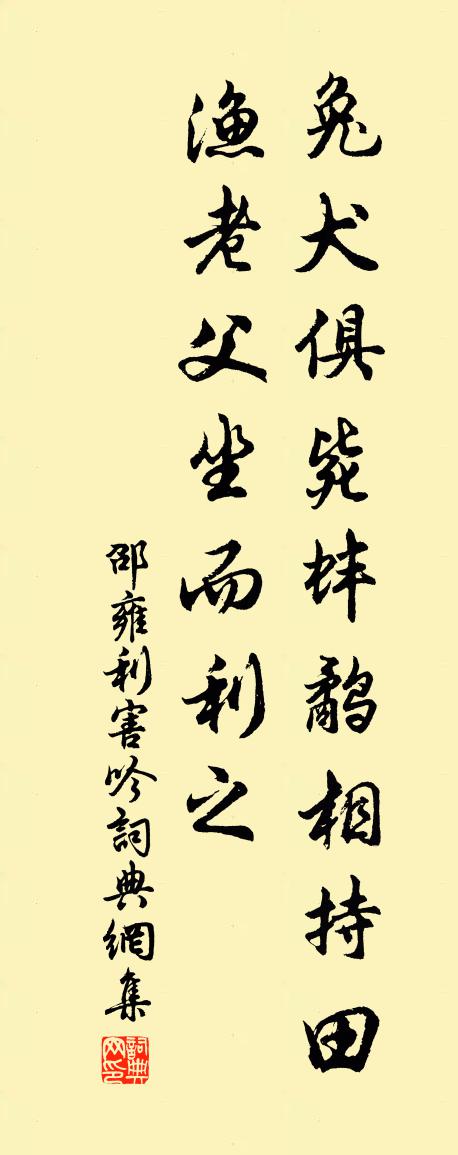 兔犬俱毙蚌鹬相持田
渔老父坐而利之
邵雍利害吟詞典網集
詞典网印